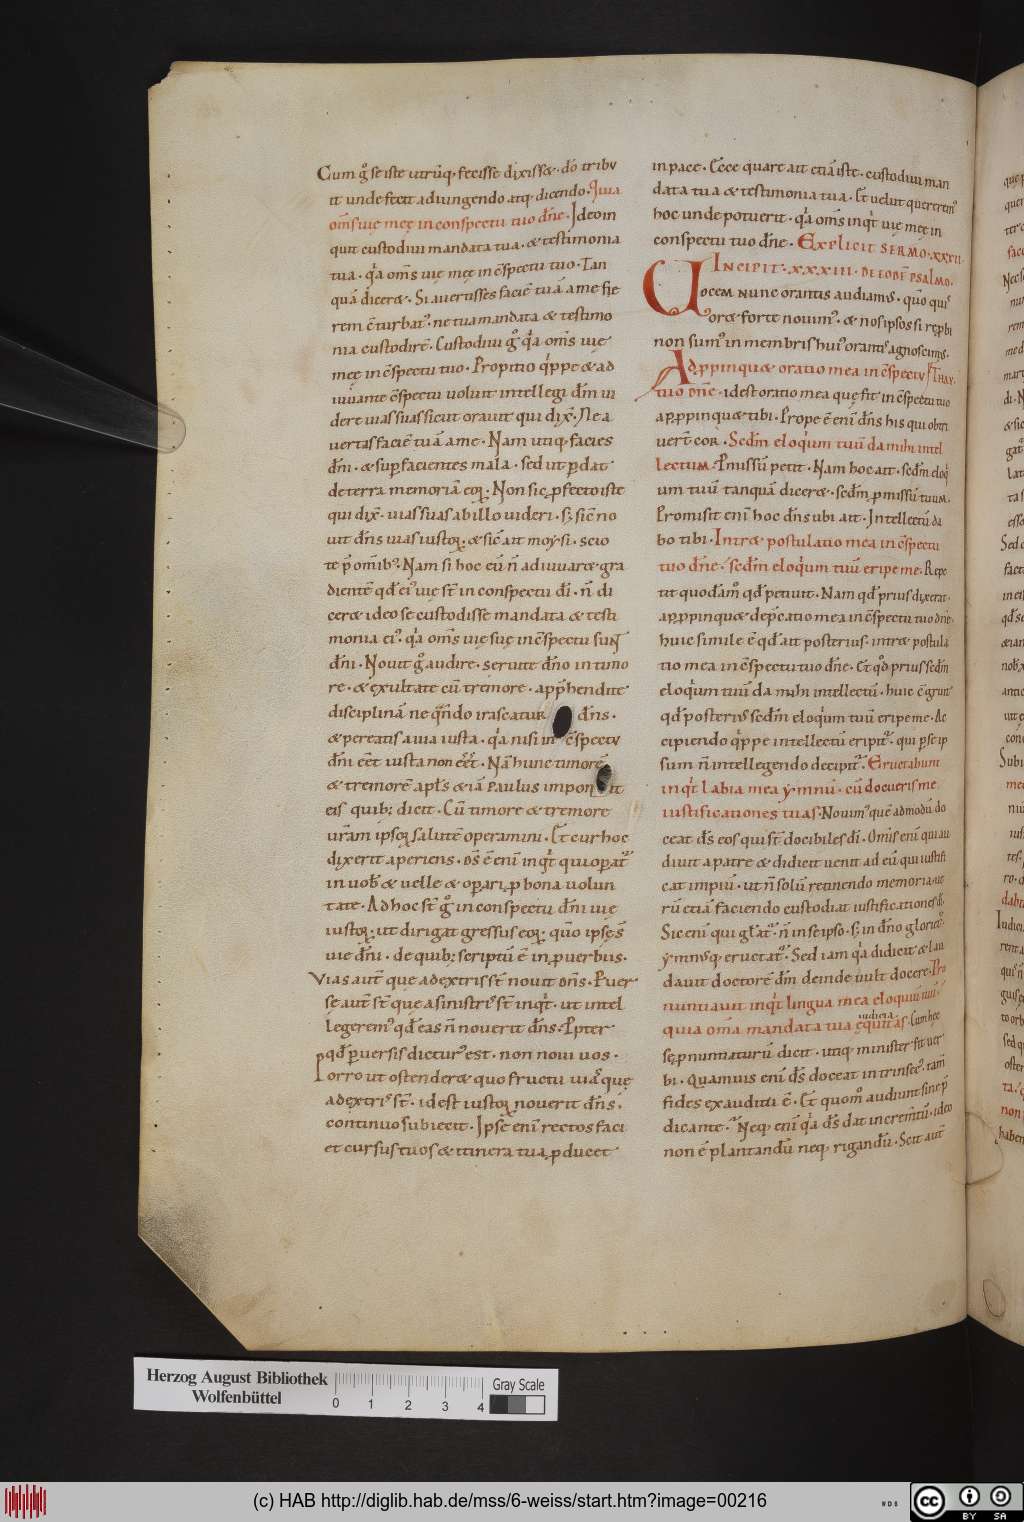 Cum g̊ se iste utrūq; fecisse dixiss&. dō tribu
it unde fecit adiungendo atq; dicendo. Quia
om̄s uię meę in conspectu tuo dn̄e. Ideo in
quit custodiui mandata tua. & testimonia
tua. q̇a om̄s uię meę in c̄spectu tuo. Tan
quā dicer&. Si auertisses faciē tuā a me fie
rem c̄turbatꝰ. ne tua mandata & testimo
nia custodirē. Custodiui g̊ q̇a om̄s uię
meę in c̄spectu tuo. Propitio q̇ppe & ad
iuuante c̄spectu uoluit intellegi dn̄m ui
dere uias suas sicut orauit qui dix̄. Ne a
uertas faciē tuā a me. Nam utiq; facies
dn̄i. & sup facientes mala. sed ut ꝑdat
de terra memoriā eoꝝ. Non sic ꝓfecto iste
qui dix̄. uias suas ab illo uideri. sꝫ sic̄ no
uit dn̄s uias iustoꝝ. & sic̄ ait moy si. scio
te p̄ om̄ibꝰ. Nam si hoc eū n̄ adiuuar& gra
dientē qd̄ eiꝰ uię st̄ in conspectu dī. n̄ di
cer& ideo se custodisse mandata & testi
monia eiꝰ. q̇a om̄s uię suę in c̄spectu sunt
dn̄i. Nouit g̊ audire. seruite dn̄o in timo
re. & exultate eū tremore. app̄hendite
disciplinā ne q̄ndo irascatur dn̄s.
& pereatis a uia iusta. q̇a nisi in c̄spectu
dn̄i eēt iusta non eēt. Nā hunc timorē
& tremorē apl̄s & iā paulus imponit
eis quib; dicit. Cū timore & tremore
ur̄am ipsoꝝ salutē operamini. Et cur hoc
dixerit aperiens. ds̄ ē enī inq̇t qui oꝑatꝰ
in uob̄ & uelle & oꝑari ꝓ bona uolun
tate. Ad hoc st̄ g̊ in conspectu dn̄i uię
iustoꝝ. ut dirigat gressus eoꝝ. quō ipsę s̄
uię dn̄i. de quib; scriptū ē in ꝓuerbiis.
Vias aut̄ que a dextris st̄ nouit dn̄s. Puer
se aut̄ st̄ que a sinistrꝭ st̄ inq̇t. ut intel
legeremꝰ qd̄ eas n̄ nouerit dn̄s. Ppter
qd̄ ꝑuersis dicturꝰ est. non noui uos.
Porro ut ostender& quo fructu uias que
a dextrꝭ st̄. idest iustoꝝ nouerit dn̄s.
continuo subiecit. Ipse enī rectos faci
et cursus tuos & itinera tua ꝓducet
in pace. Ecce quare ait etiā iste. custodiui man
data tua & testimonia tua. Et uelut quereremꝰ
hoc unde potuerit. q̇a om̄s inq̇t uię meę in
conspectu tuo dn̄e. Explicit sermo. xxxii.
Incipit. xxxiii. de eodē psalmo.
Uocem nunc orantis audiamꝰ. quō quis
or& forte nouimꝰ. & nos ipsos si ręp̄bi
non sumꝰ in membris huiꝰ orantis agnoscimꝰ.
Adꝓpinqu& oratio mea in c̄spectu
tuo dn̄e. idest oratio mea que fit in c̄spectu tuo
apꝓpinqu& tibi. Prope ē enī dn̄s his qui obtri
uerт̄ cor. Sedm̄ eloq̇um tuū da mihi intel
lectum. Pmissū petit. Nam hoc ait. sedm̄ eloq̇
um tuū tanquā dicer&. sedm̄ ꝓmissū tuum.
Promisit enī hoc dn̄s ubi ait. Intellectū da
bo tibi. Intr& postulatio mea in c̄spectu
tuo dn̄e. sedm̄ eloq̇um tuū eripe me. Repe
tit quodāmͦ qd̄ petiuit. Nam qd̄ prius dixerat.
apꝓpinqu& dep̄catio mea in c̄spectu tuo dn̄e.
huic simile ē qd̄ ait posterius. intr& postula
tio mea in c̄spectu tuo dn̄e. Et qd̄ prius sedm̄
eloq̇um tuū da mihi intellectū. huic c̄gruit
qd̄ posteriꝰ sedm̄ eloq̇um tuū eripe me. Ac
cipiendo q̇ppe intellectū eripitꝰ. qui ꝑ se ip
sum n̄ intellegendo decipitꝰ. Eructabunt
inq̇t labia mea ymnū. cū docueris me
iustificationes tuas. Nouimꝰ quē admodū do
ceat ds̄ eos qui st̄ docibiles dī. Omnis enī qui au
diuit a patre & didicit uenit ad eū qui iustifi
cat impiū. ut n̄ solū retinendo memoria. ue
rū etiā faciendo custodiat iustificationes dī.
Sic enī qui gl̄atꝰ. n̄ in se ipso. sꝫ in dn̄o glorietꝰ.
ymnūq; eructatꝰ. Sed iam q̇a didicit & lau
dauit doctorē dm̄ deinde uult docere. Pro
nuntiauit inq̇t lingua mea eloquiū tuū.
quia om̄a mandata tua ęquitas. Cum hęc
iudicia
sę ꝓnuntiaturū dicit. utiq; minister fit uer
bi. Quamuis enī ds̄ doceat intrinsecꝰ. tam̄
fides ex auditu ē. Et quomͦ audiunt sine p̄
dicante. Neq; enī q̇a ds̄ dat incrementū. ideo
non ē plantandū neq; rigandū. Scit aut̄
Herzog August Bibliothek
Wolfenbüttel
0 1 2 3 4
Gray Scale
(c) HAB http://diglib.hab.de/mss/6-weiss/start.htm?image=00216
cc BY SA